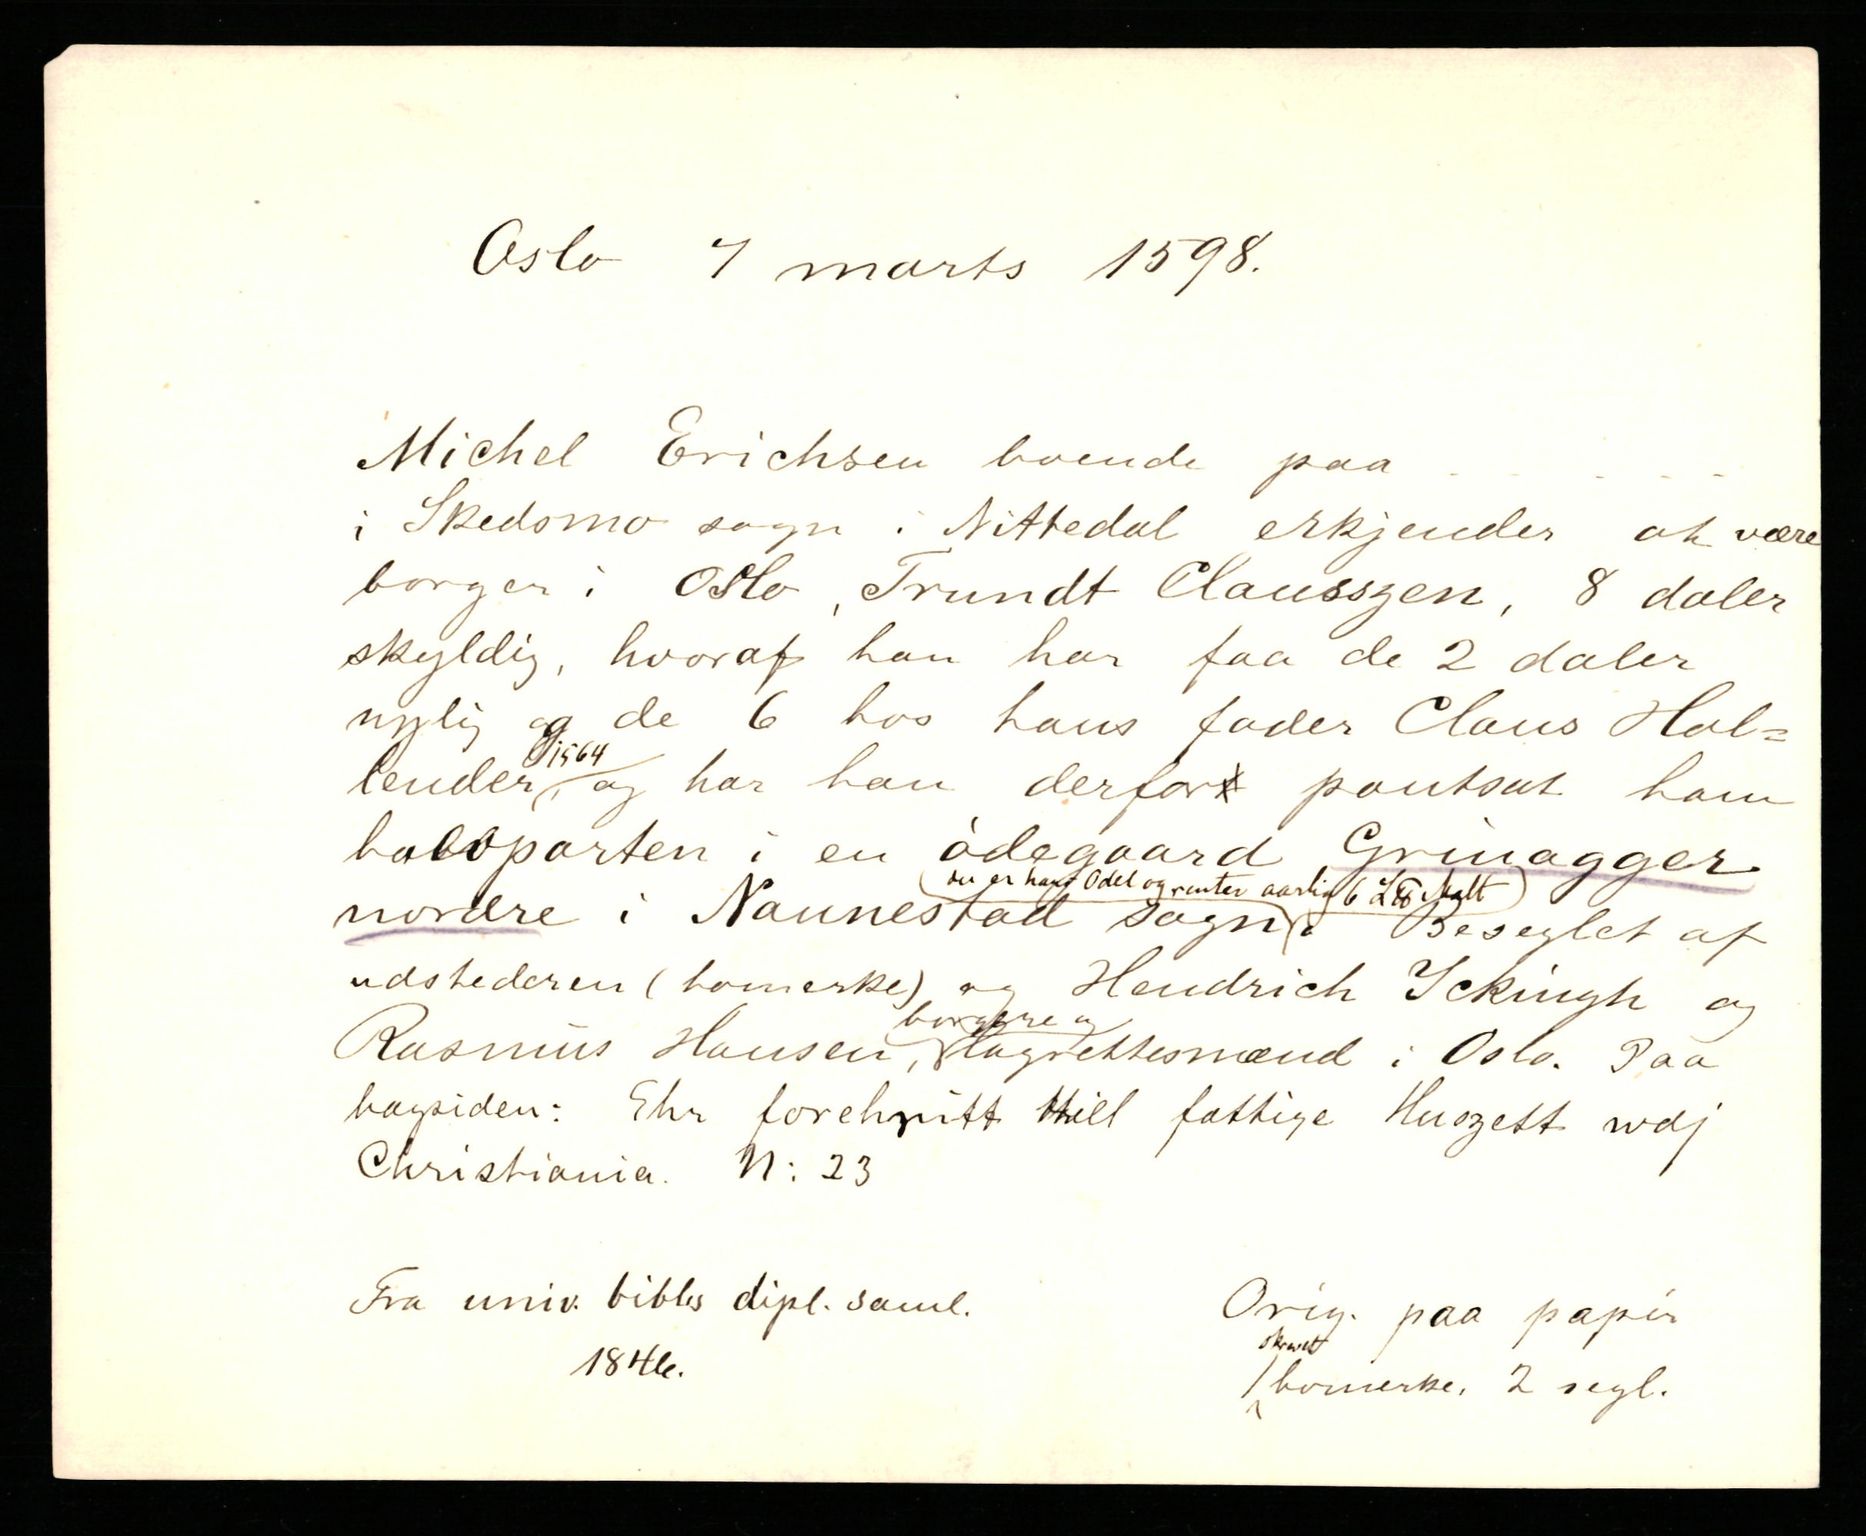 Oslo 7 marts 1598.
Michel Erichsen boende paa . . . . .
i Skedsmo sogn i Nittedal erkjender at være
borger i Oslo, Trundt Clausszen, 8 daler
skyldig, hvoraf han har faa de 2 daler
nylig og de 6 hos hans fader Claus Hol=
lender, i 1564 og har han derfor pantsat ham
halvparten i en ödegaard Grinagger
nordre i Nannestad sogn (der er hans Odel og renter aarlig 6 L℔ Malt). Beseglet af
udstederen (bomerke) og Hendrich Ickingh og
Rasmus Hansen, borgere og lagrettesmænd i Oslo. Paa
bagsiden: Ehr forehritt till fattige Huszett wdj
Christiania. N: 23
Fra univ. bibls dipl. saml.
1846.
Orig. paa papir
1 skrevet bomerke. 2 segl.